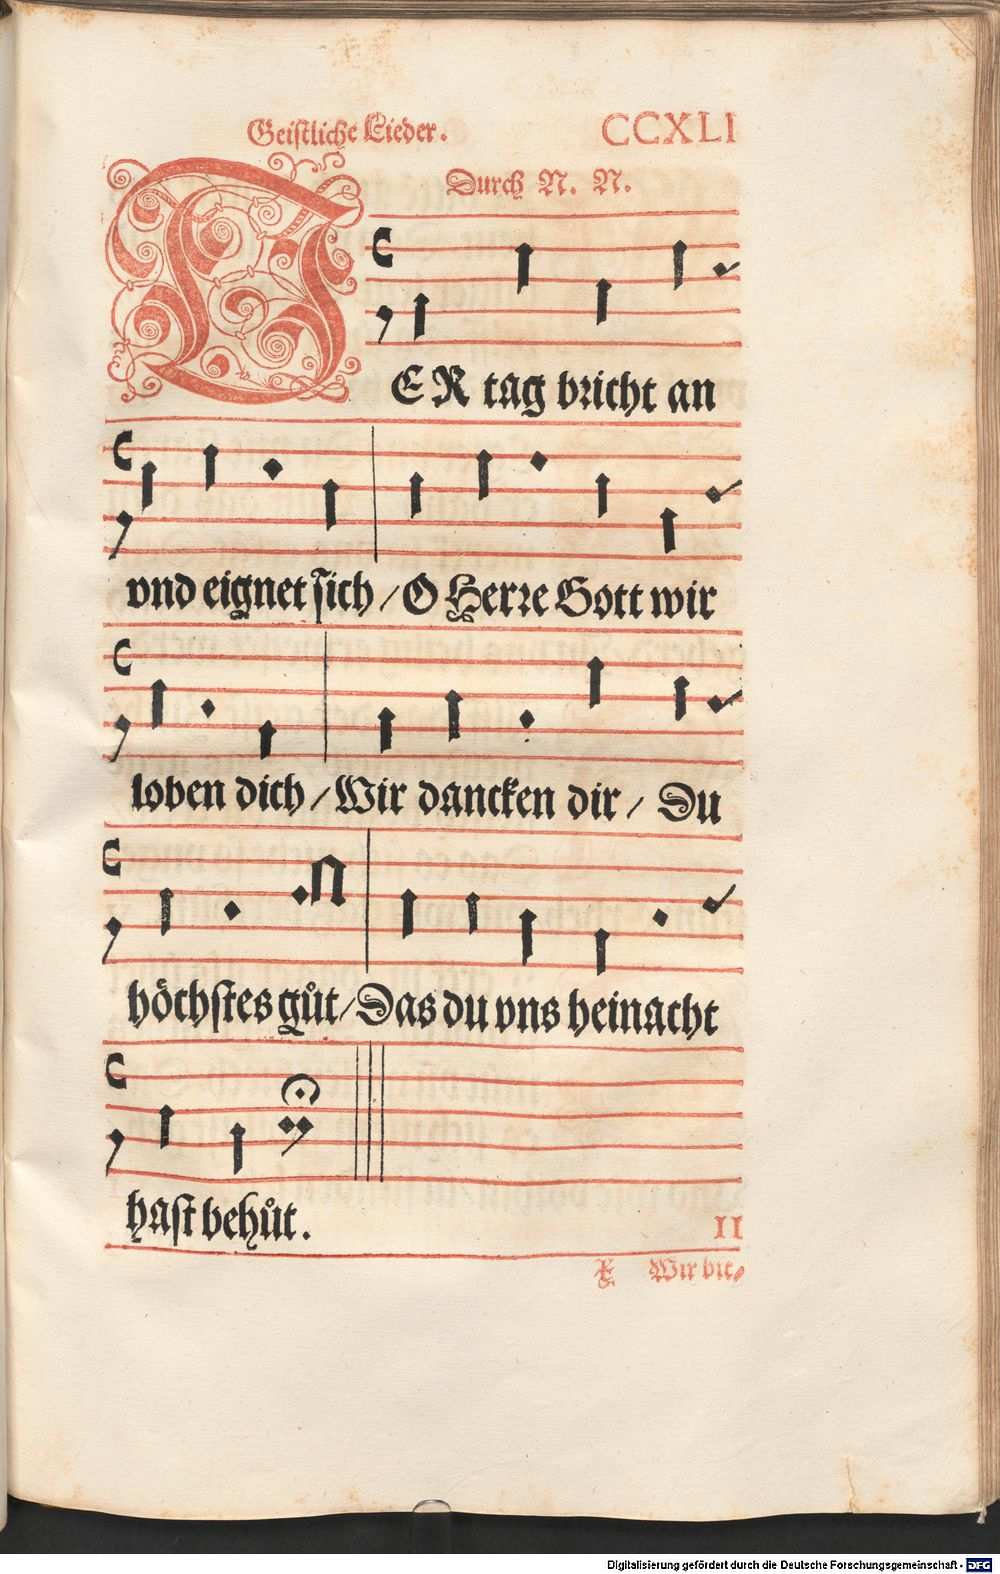 Geistliche Lieder. CCXLI
Durch N. N.
DER tag bricht an
vnd eignet sich / O Herre Gott wir
loben dich / Wir dancken dir / Du
höchstes gůt / Das du vns heinacht
hast behůt.
II
Wir bit⸗
Digitalisierung gefördert durch die Deutsche Forschungsgemeinschaft - DFG